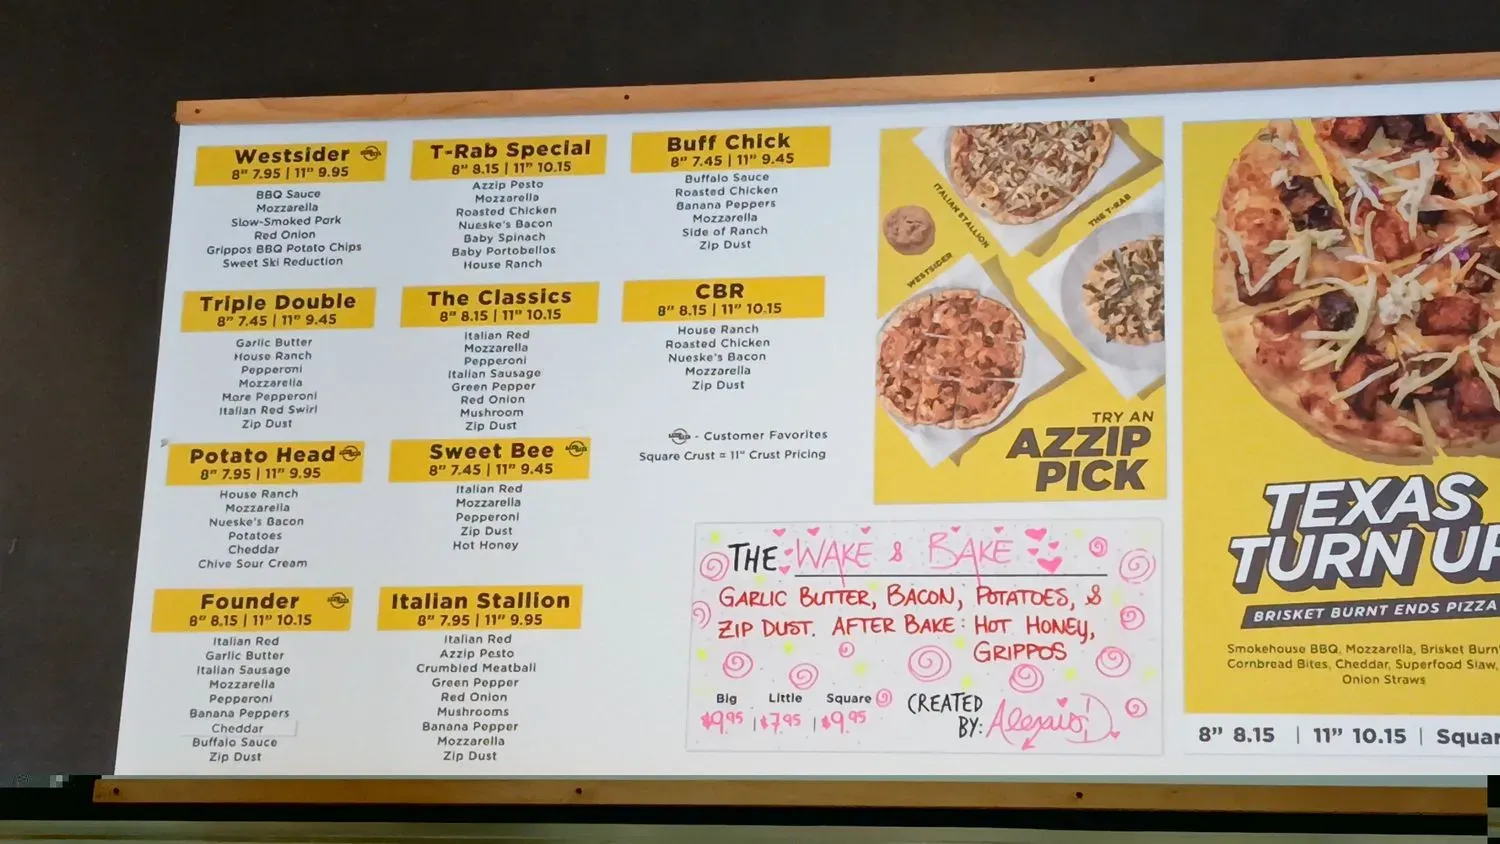 Westsider
8" 7.95 | 11" 9.95
BBQ Sauce
Mozzarella
Slow-Smoked Pork
Red Onion
Grippos BBQ Potato Chips
Sweet Ski Reduction
Triple Double
8" 7.45 | 11" 9.45
Garlic Butter
House Ranch
Pepperoni
Mozzarella
More Pepperoni
Italian Red Swirl
Zip Dust
Potato Head
8" 7.95 | 11" 9.95
House Ranch
Mozzarella
Nueske's Bacon
Potatoes
Cheddar
Chive Sour Cream
Founder
8" 8.15 | 11" 10.15
Italian Red
Garlic Butter
Italian Sausage
Mozzarella
Pepperoni
Banana Peppers
Cheddar
Buffalo Sauce
Zip Dust
T-Rab Special
8" 8.15 | 11" 10.15
Azzip Pesto
Mozzarella
Roasted Chicken
Nueske's Bacon
Baby Spinach
Baby Portobellos
House Ranch
The Classics
8" 8.15 | 11" 10.15
Italian Red
Mozzarella
Pepperoni
Italian Sausage
Green Pepper
Red Onion
Mushroom
Zip Dust
Sweet Bee
8" 7.45 | 11" 9.45
Italian Red
Mozzarella
Pepperoni
Zip Dust
Hot Honey
Italian Stallion
8" 7.95 | 11" 9.95
Italian Red
Azzip Pesto
Crumbled Meatball
Green Pepper
Red Onion
Mushrooms
Banana Pepper
Mozzarella
Zip Dust
Buff Chick
8" 7.45 | 11" 9.45
Buffalo Sauce
Roasted Chicken
Banana Peppers
Mozzarella
Side of Ranch
Zip Dust
CBR
8" 8.15 | 11" 10.15
House Ranch
Roasted Chicken
Nueske's Bacon
Mozzarella
Zip Dust
- Customer Favorites
Square Crust = 11" Crust Pricing
ITALIAN STALLION
THE T-RAB
WESTSIDER
TRY AN
AZZIP
PICK
THE WAKE & BAKE
GARLIC BUTTER, BACON, POTATOES, &
ZIP DUST. AFTER BAKE: HOT HONEY,
GRIPPOS
Big Little Square
$9.95 | $7.95 | $9.95
CREATED
BY: Alexais D
TEXAS
TURN UP
BRISKET BURNT ENDS PIZZA
Smokehouse BBQ, Mozzarella, Brisket Burn
Cornbread Bites, Cheddar, Superfood Slaw,
Onion Straws
8" 8.15 | 11" 10.15 | Squar